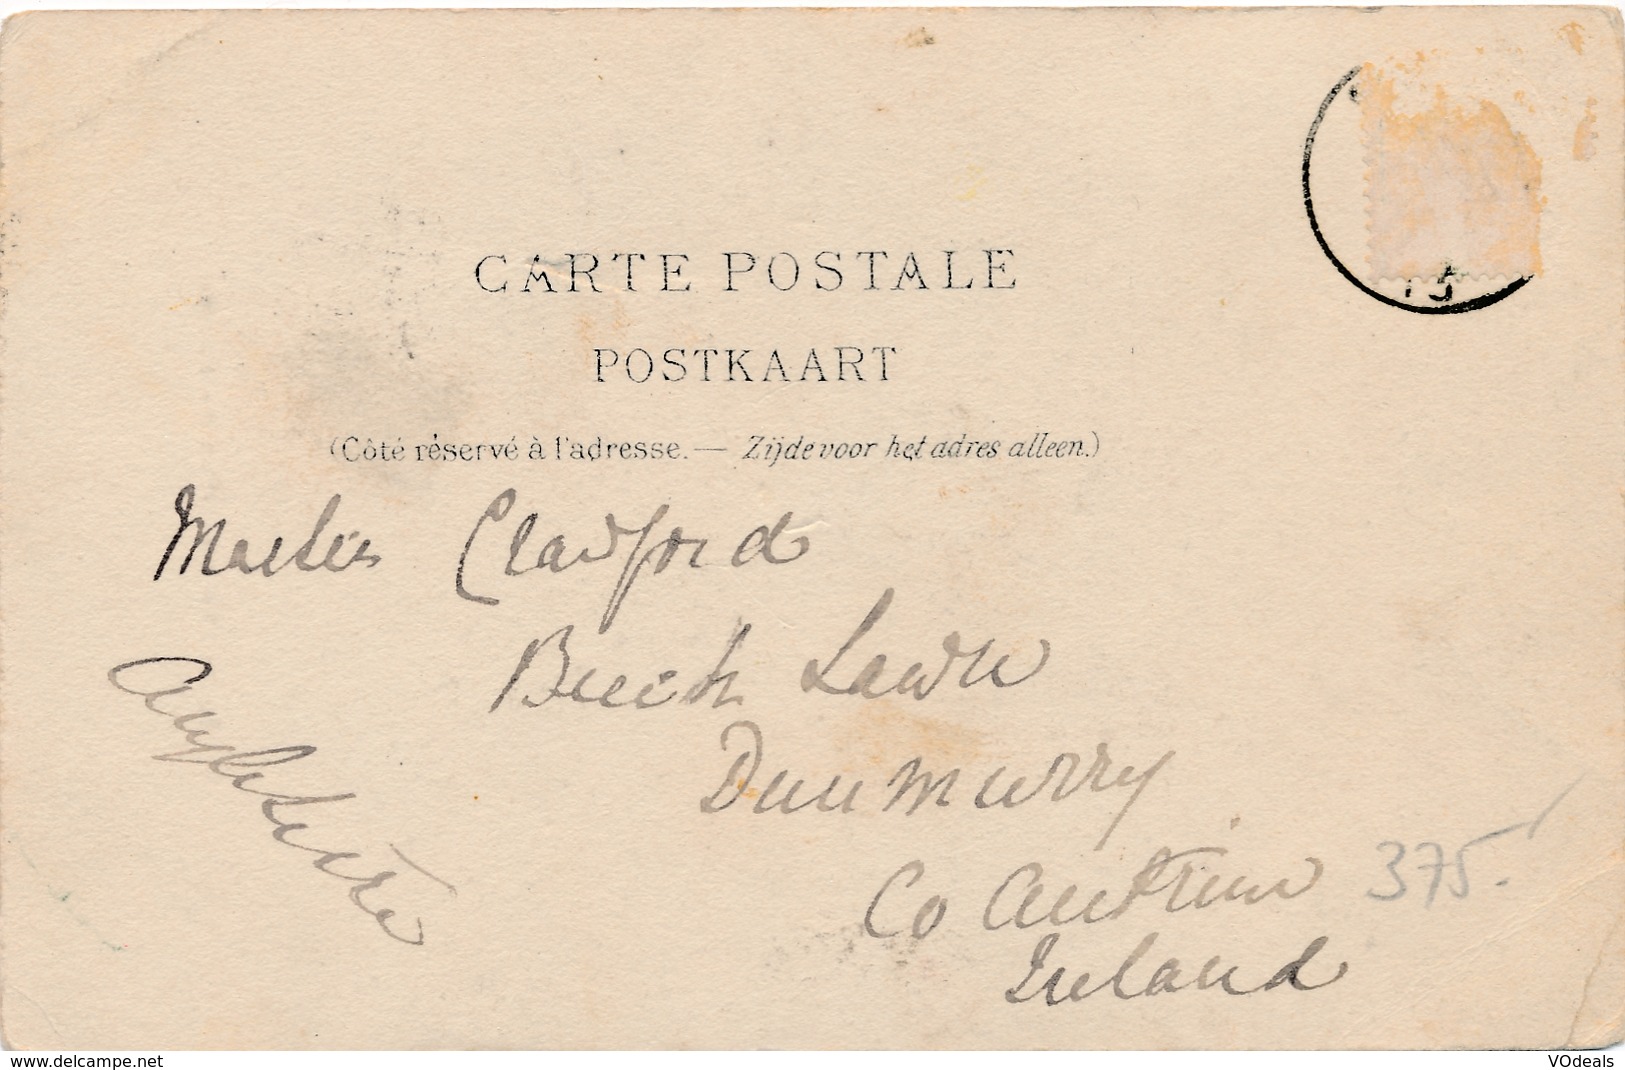 CARTE POSTALE
POSTKAART
(Côté réservé à l'adresse. — Zijde voor het adres alleen.)
Crawford
Beech Lawn
Dunmurry
Co Antrim
Ireland
Angleterre
375.
15
www.delcampe.net
VOdeals